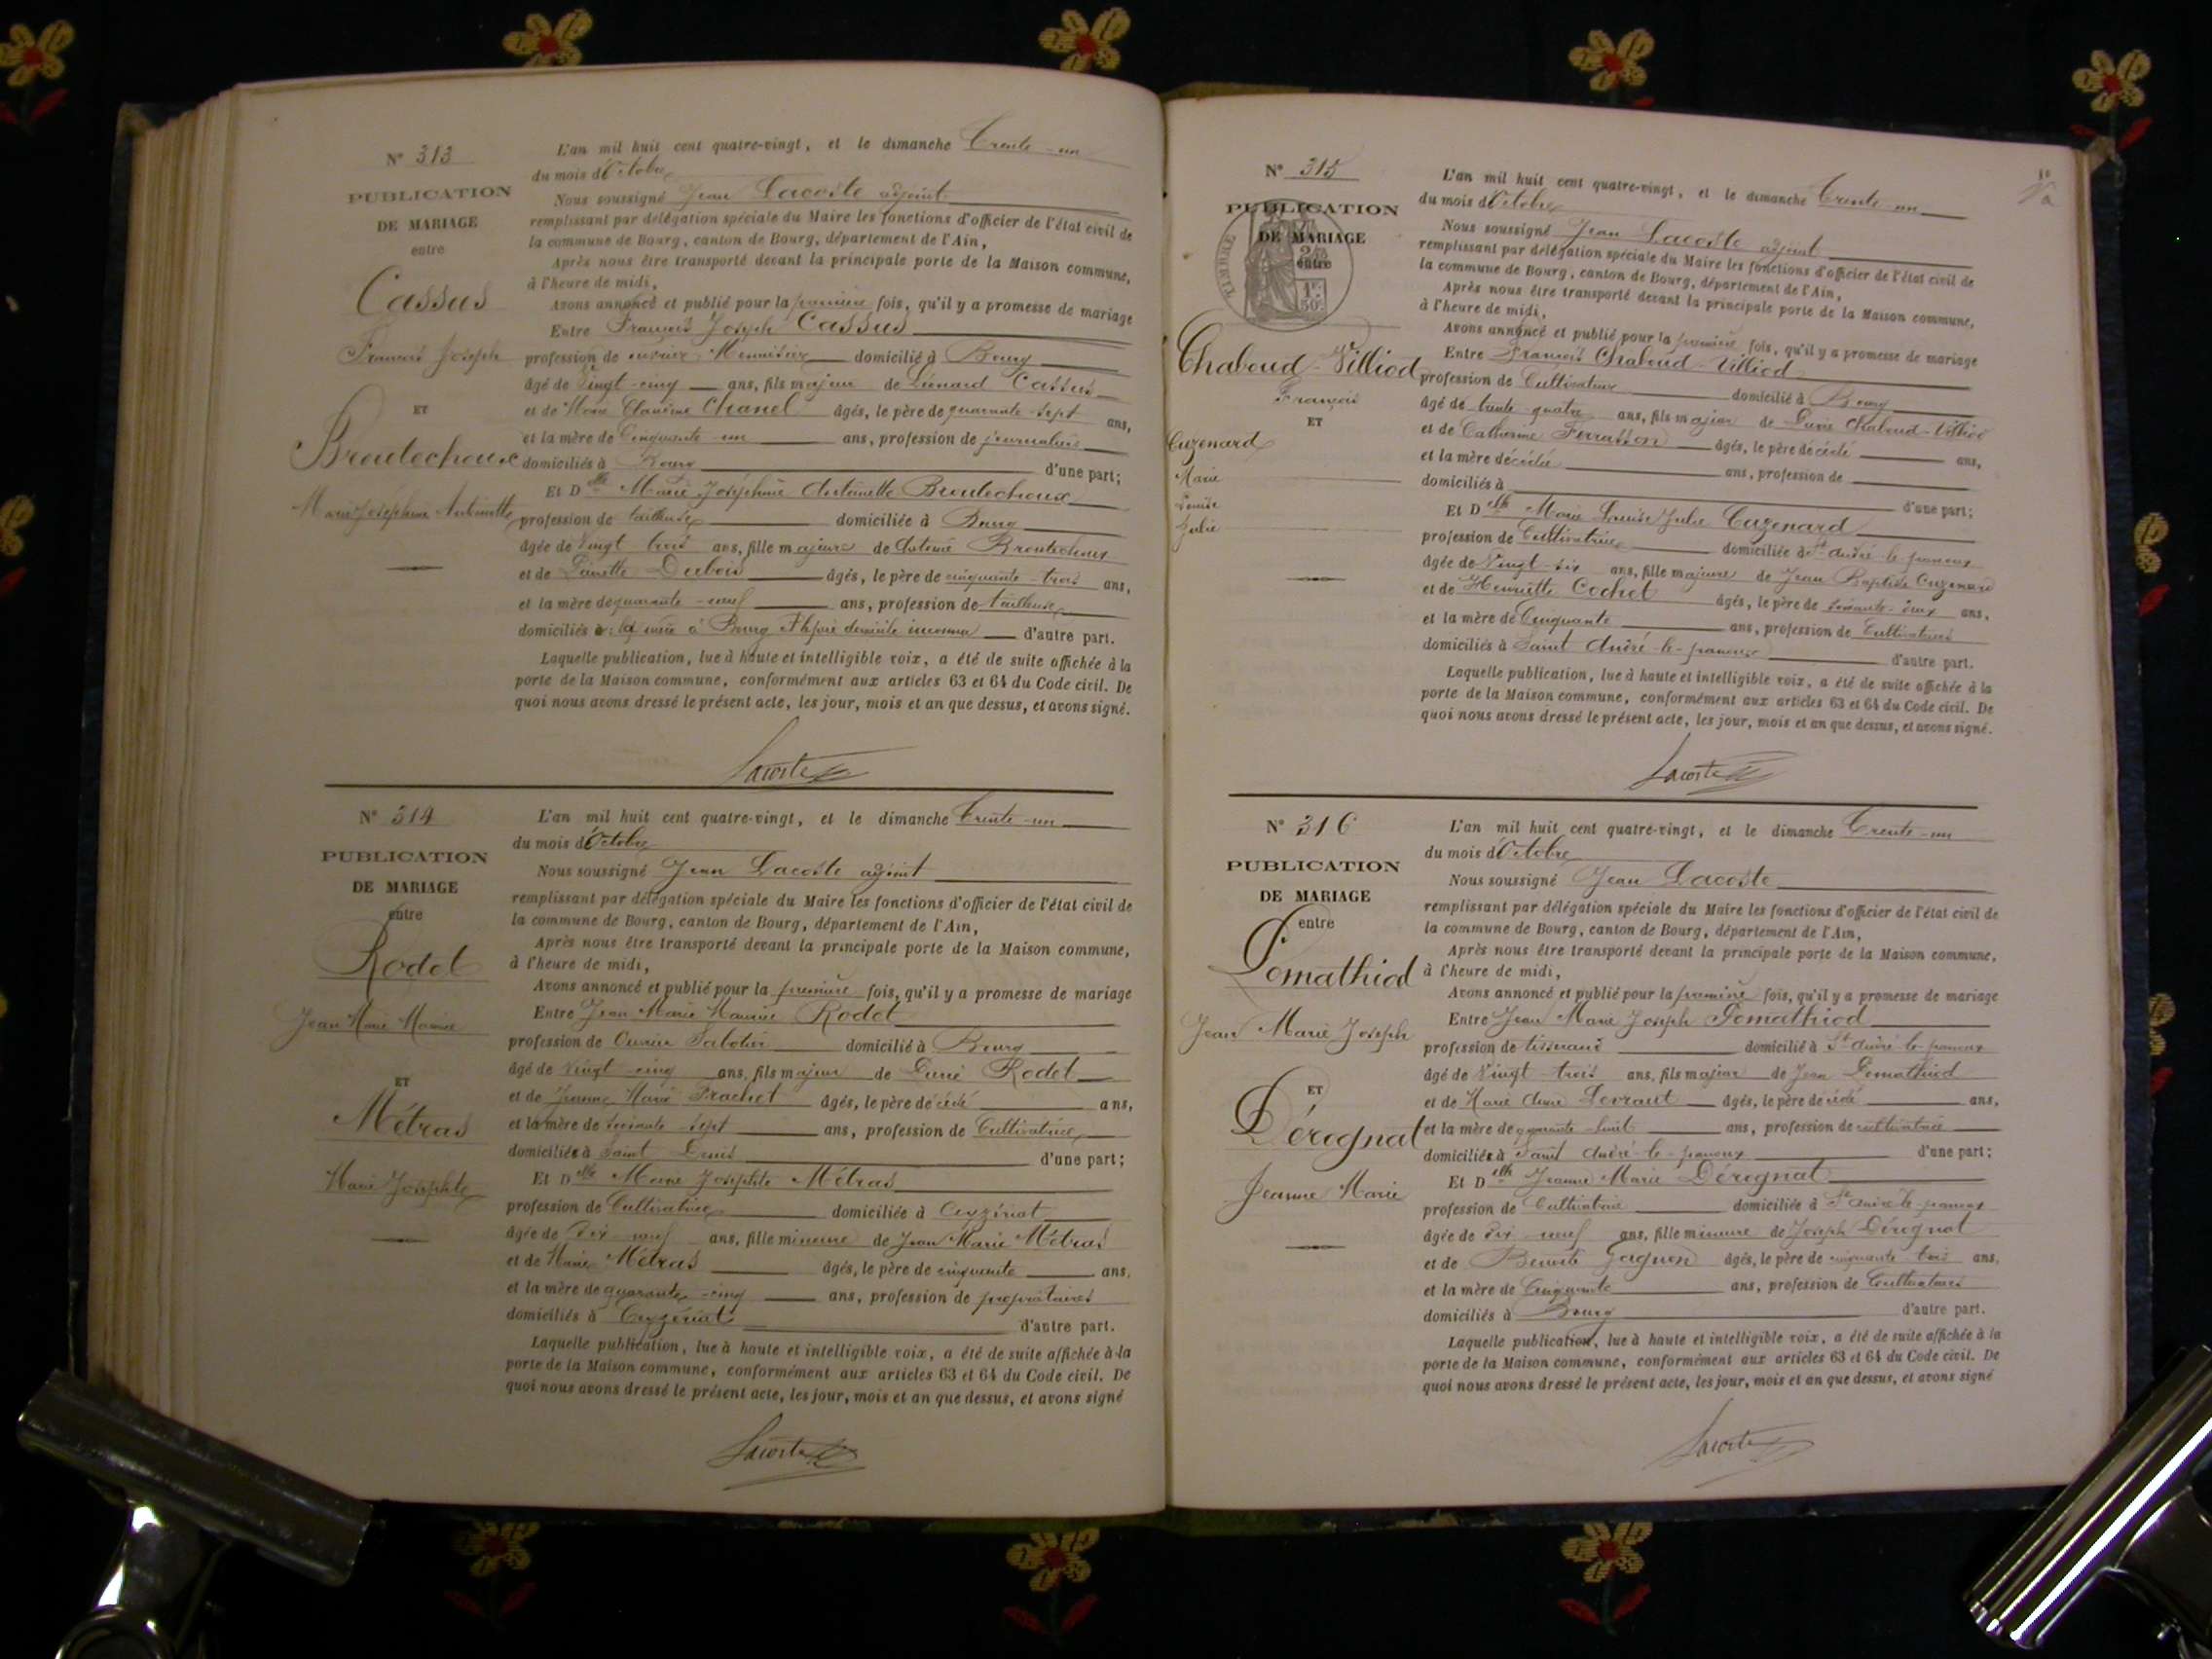 N° 313
PUBLICATION
DE MARIAGE
entre
Cassus
François Joseph
ET
Broutechoux
Marie Joséphine Antoinette
L'an mil huit cent quatre-vingt, et le dimanche Trente-un
du mois d'Octobre
Nous soussigné Jean Lacoste adjoint
remplissant par délégation spéciale du Maire les fonctions d'officier de l'état civil de
la commune de Bourg, canton de Bourg, département de l'Ain,
Après nous être transporté devant la principale porte de la Maison commune,
à l'heure de midi,
Avons annoncé et publié pour la première fois, qu'il y a promesse de mariage
Entre François Joseph Cassus
profession de ouvrier Menuisier domicilié à Bourg
âgé de Vingt-cinq ans, fils majeur de Léonard Cassus
et de Marie Claudine Chanel âgés, le père de quarante-sept ans,
et la mère de Cinquante-un ans, profession de journaliers
domiciliés à Bourg d'une part;
Et Dlle Marie Joséphine Antoinette Broutechoux
profession de tailleuse domiciliée à Bourg
âgée de Vingt-trois ans, fille majeure de Antoine Broutechoux
et de Pierrette Dubois âgés, le père de cinquante-trois ans,
et la mère de quarante-neuf ans, profession de tailleuse
domiciliés à : la mère à Bourg et le père domicile inconnu d'autre part.
Laquelle publication, lue à haute et intelligible voix, a été de suite affichée à la
porte de la Maison commune, conformément aux articles 63 et 64 du Code civil. De
quoi nous avons dressé le présent acte, les jour, mois et an que dessus, et avons signé.
Lacoste
N° 314
PUBLICATION
DE MARIAGE
entre
Rodet
Jean Marie Maurice
ET
Métras
Marie Josephte
L'an mil huit cent quatre-vingt, et le dimanche Trente-un
du mois d'Octobre
Nous soussigné Jean Lacoste adjoint
remplissant par délégation spéciale du Maire les fonctions d'officier de l'état civil de
la commune de Bourg, canton de Bourg, département de l'Ain,
Après nous être transporté devant la principale porte de la Maison commune,
à l'heure de midi,
Avons annoncé et publié pour la première fois, qu'il y a promesse de mariage
Entre Jean Marie Maurice Rodet
profession de Ouvrier Sabotier domicilié à Bourg
âgé de Vingt-cinq ans, fils majeur de Denis Rodet
et de Jeanne Marie Frachet âgés, le père décédé ans,
et la mère de soixante-sept ans, profession de Cultivatrice
domiciliés à Saint Denis d'une part;
Et Dlle Marie Josephte Métras
profession de Cultivatrice domiciliée à Ceyzériat
âgée de Dix-neuf ans, fille mineure de Jean Marie Métras
et de Marie Métras âgés, le père de cinquante ans,
et la mère de quarante-cinq ans, profession de propriétaires
domiciliés à Ceyzériat d'autre part.
Laquelle publication, lue à haute et intelligible voix, a été de suite affichée à la
porte de la Maison commune, conformément aux articles 63 et 64 du Code civil. De
quoi nous avons dressé le présent acte, les jour, mois et an que dessus, et avons signé
Lacoste
N° 315
PUBLICATION
DE MARIAGE
entre
TIMBRE
1F
50c
Chaboud-Villiod
François
ET
Cuzenard
Marie
Louise
Julie
L'an mil huit cent quatre-vingt, et le dimanche Trente-un
du mois d'Octobre
Nous soussigné Jean Lacoste adjoint
remplissant par délégation spéciale du Maire les fonctions d'officier de l'état civil de
la commune de Bourg, canton de Bourg, département de l'Ain,
Après nous être transporté devant la principale porte de la Maison commune,
à l'heure de midi,
Avons annoncé et publié pour la première fois, qu'il y a promesse de mariage
Entre François Chaboud-Villiod
profession de Cultivateur domicilié à Bourg
âgé de trente-quatre ans, fils majeur de Denis Chaboud-Villiod
et de Catherine Ferrasson âgés, le père décédé ans,
et la mère décédée ans, profession de
domiciliés à d'une part;
Et Dlle Marie Louise Julie Cuzenard
profession de Cultivatrice domiciliée à St André-le-panoux
âgée de Vingt-six ans, fille majeure de Jean Baptiste Cuzenard
et de Henriette Cochet âgés, le père de soixante-deux ans,
et la mère de Cinquante ans, profession de Cultivateurs
domiciliés à Saint André-le-panoux d'autre part.
Laquelle publication, lue à haute et intelligible voix, a été de suite affichée à la
porte de la Maison commune, conformément aux articles 63 et 64 du Code civil. De
quoi nous avons dressé le présent acte, les jour, mois et an que dessus, et avons signé.
Lacoste
N° 316
PUBLICATION
DE MARIAGE
entre
Pomathiod
Jean Marie Joseph
ET
Dérognat
Jeanne Marie
L'an mil huit cent quatre-vingt, et le dimanche Trente-un
du mois d'Octobre
Nous soussigné Jean Lacoste
remplissant par délégation spéciale du Maire les fonctions d'officier de l'état civil de
la commune de Bourg, canton de Bourg, département de l'Ain,
Après nous être transporté devant la principale porte de la Maison commune,
à l'heure de midi,
Avons annoncé et publié pour la première fois, qu'il y a promesse de mariage
Entre Jean Marie Joseph Pomathiod
profession de tisserand domicilié à St André-le-panoux
âgé de Vingt-trois ans, fils majeur de Jean Pomathiod
et de Marie Anne Levraut âgés, le père décédé ans,
et la mère de quarante-huit ans, profession de cultivatrice
domiciliés à Saint André-le-panoux d'une part;
Et Dlle Jeanne Marie Dérognat
profession de Cultivatrice domiciliée à St André-le-panoux
âgée de Dix-neuf ans, fille mineure de Joseph Dérognat
et de Benoite Gagnon âgés, le père de cinquante trois ans,
et la mère de Cinquante ans, profession de Cultivateurs
domiciliés à Bourg d'autre part.
Laquelle publication, lue à haute et intelligible voix, a été de suite affichée à la
porte de la Maison commune, conformément aux articles 63 et 64 du Code civil. De
quoi nous avons dressé le présent acte, les jour, mois et an que dessus, et avons signé
Lacoste